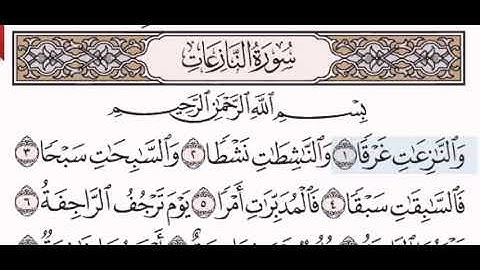 سُورَةُ النَّازِعَاتِ
بِسْمِ اللَّهِ الرَّحْمَٰنِ الرَّحِيمِ
وَٱلنَّٰزِعَٰتِ غَرْقًا ١ وَٱلنَّٰشِطَٰتِ نَشْطًا ٢ وَٱلسَّٰبِحَٰتِ سَبْحًا ٣
فَٱلسَّٰبِقَٰتِ سَبْقًا ٤ فَٱلْمُدَبِّرَٰتِ أَمْرًا ٥ يَوْمَ تَرْجُفُ ٱلرَّاجِفَةُ ٦